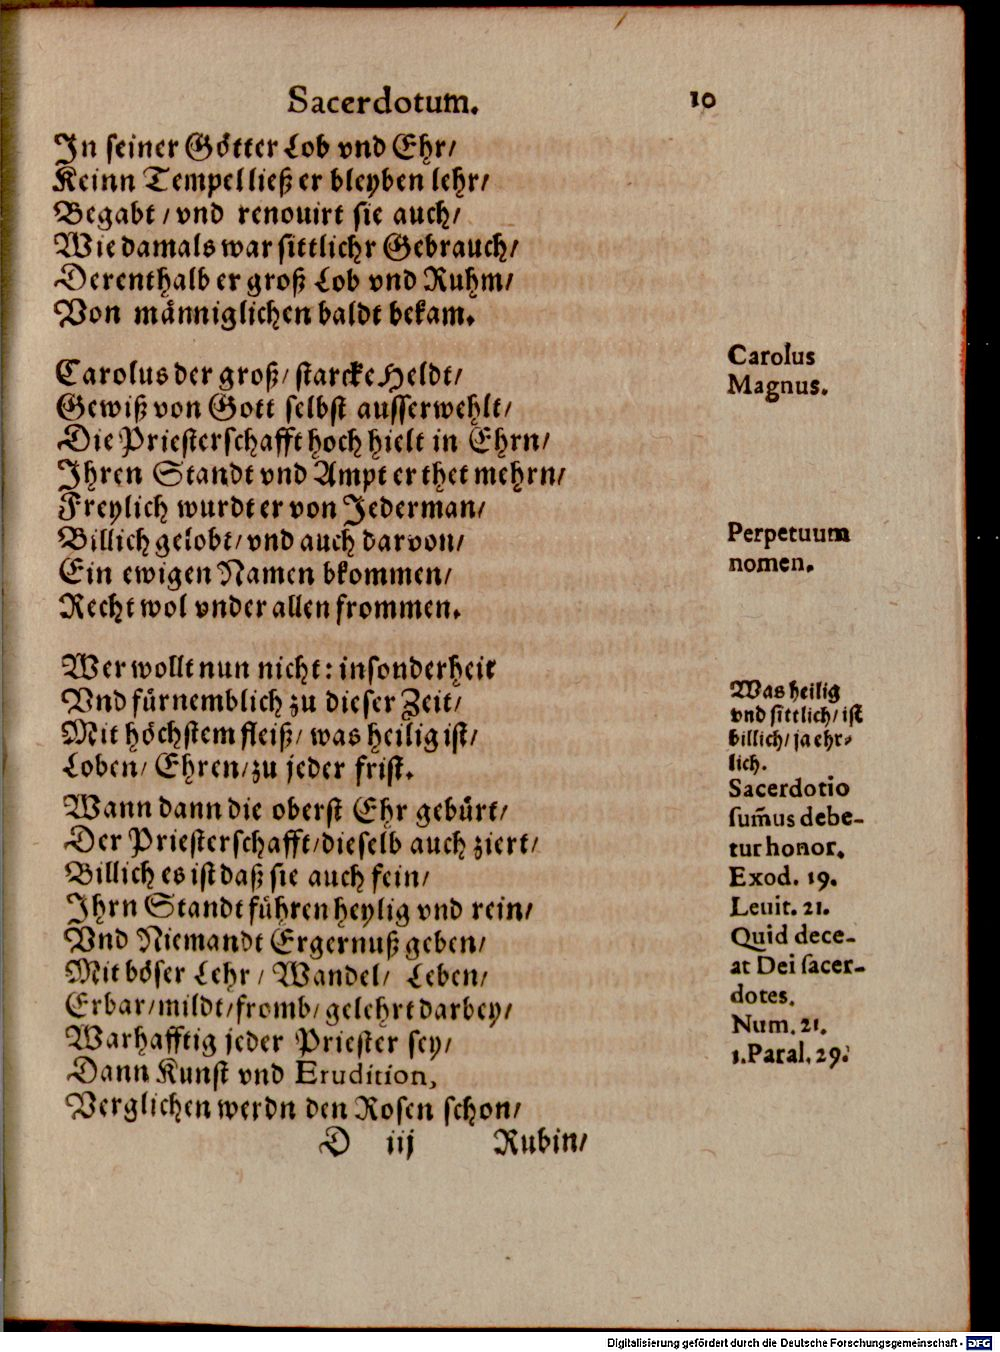 Sacerdotum. 10
In seiner Götter Lob vnd Ehr/
Keinn Tempel ließ er bleyben lehr/
Begabt / vnd renouirt sie auch/
Wie damals war sittlichr Gebrauch/
Derenthalb er groß Lob vnd Ruhm/
Von männiglichen baldt bekam.
Carolus der groß/ starcke Heldt/
Gewiß von Gott selbst ausserwehlt/
Die Priesterschafft hoch hielt in Ehrn/
Ihren Standt vnd Ampt er thet mehrn/
Freylich wurdt er von Jederman/
Billich gelobt/ vnd auch darvon/
Ein ewigen Namen bkommen/
Recht wol vnder allen frommen.
Wer wollt nun nicht: insonderheit
Vnd fürnemblich zu dieser Zeit/
Mit höchstem fleiß/ was heilig ist/
Loben/ Ehren/ zu jeder frist.
Wann dann die oberst Ehr gebürt/
Der Priesterschafft/ dieselb auch ziert/
Billich es ist daß sie auch fein/
Ihrn Standt führen heylig vnd rein/
Vnd Niemandt Ergernuß geben/
Mit böser Lehr / Wandel/ Leben/
Erbar/ mildt/ fromb/ gelehrt darbey/
Warhafftig jeder Priester sey/
Dann Kunst vnd Erudition,
Verglichen werdn den Rosen schon/
D iij Rubin/
Carolus
Magnus.
Perpetuum
nomen.
Was heilig
vnd sittlich/ ist
billich/ ja ehr-
lich.
Sacerdotio
sum̃us debe-
tur honor.
Exod. 19.
Leuit. 21.
Quid dece-
at Dei sacer-
dotes.
Num. 21.
1. Paral. 29.
Digitalisierung gefördert durch die Deutsche Forschungsgemeinschaft - DFG